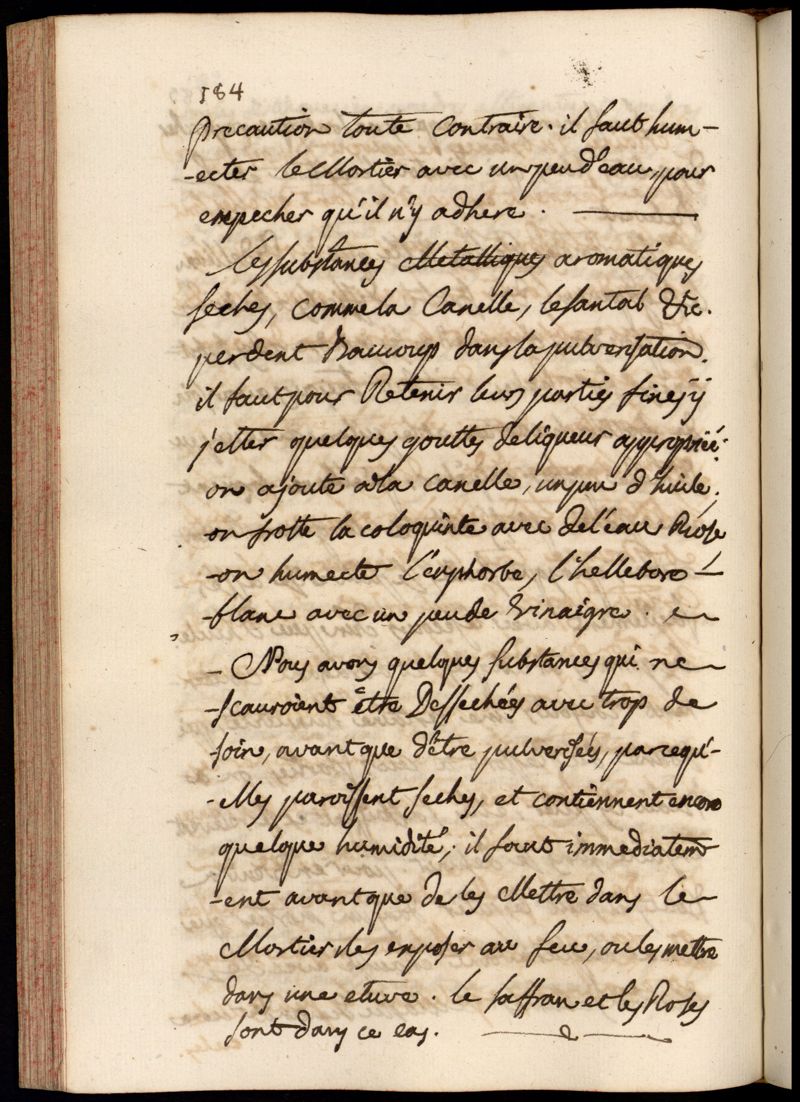 184
precaution toute contraire. il faut hum-
-ecter le Mortier avec un peu d'eau, pour
empecher qu'il n'y adhere.
les substances Metalliques aromatiques
seches, comme la Canelle, le santal &c.
perdent Baucoup dans la pulverisation.
il faut pour Retenir leurs parties fines y
jetter quelques gouttes de liqueur appropriée.
on ajoute a la canelle, un peu d'huile,
-on frotte la coloquinte avec de l'eau Rose
-on humecte l'euphorbe, l'hellebore
-blanc avec un peu de Vinaigre.
- Nous avons quelques substances qui ne
-scauroient être Dessechées avec trop de
soin, avant que d'être pulverisées, parcequ'-
-elles paroissent seches, et contiennent encore
quelque humidité, il faut immediatem
-ent avant que de les Mettre dans le
Mortier les exposer au feu, ou les mettre
dans une etuve. le saffran et les Roses
sont dans ce cas.